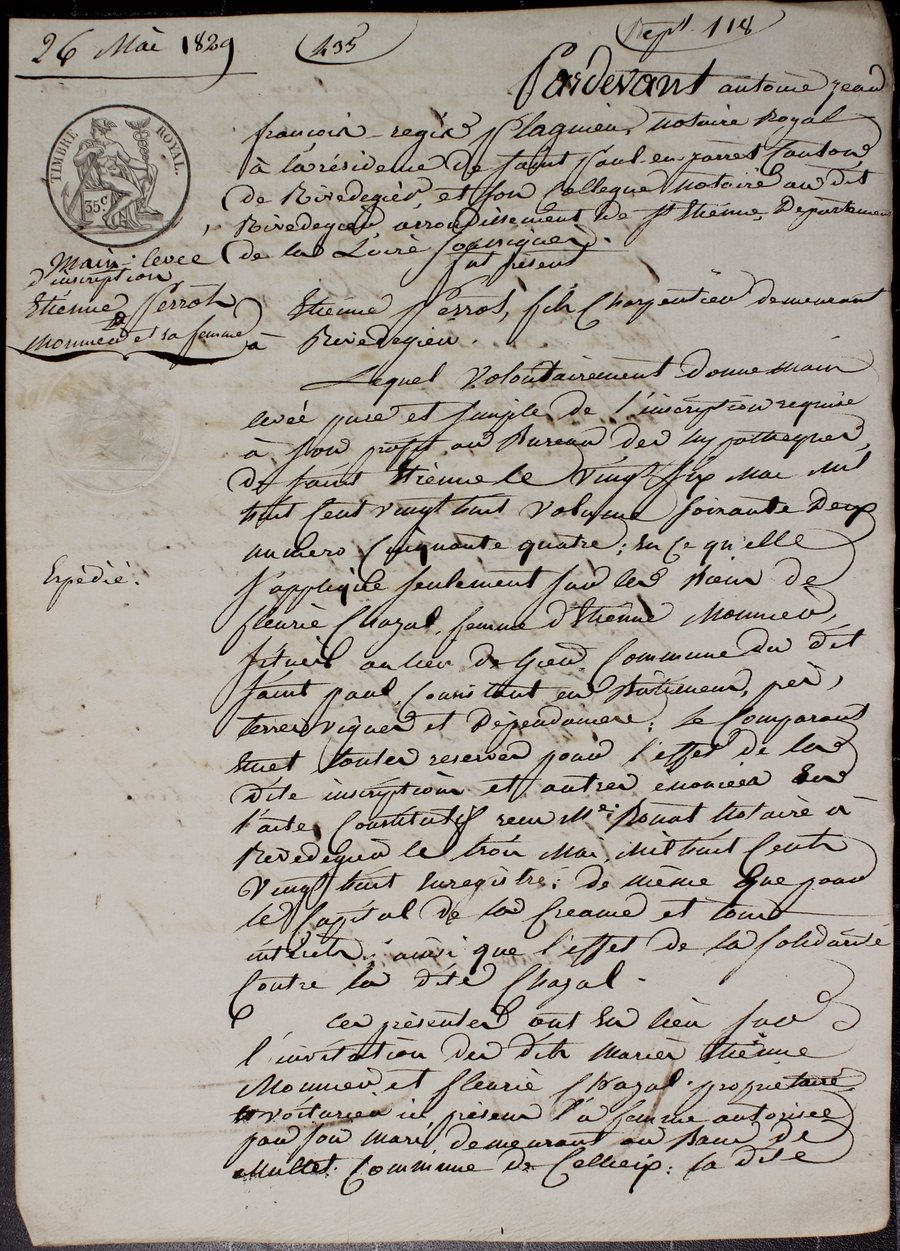 26 Mai 1829
435
Rept. 118
Pardevant antoine jean
TIMBRE ROYAL
35c
françois-regis Plagnieu, Notaire Royal
à la résidence de saint paul en jarret Canton
de Rivedegier, et son Collegue Notaire au dit
Rivedegier, arrondissement de St. Etienne, Departement
de la Loire soussignés.
fut présent
Main-levée
d'inscription
Etienne Perrot
à
Monnier et sa femme
Etienne Perrot, fils Charpentier demeurant
à Rivedegier.
Lequel Volontairement donne main
levée pure et simple de l'inscription requise
à son profit au Bureau des hypothèques
de saint Etienne le Vingt six Mai Mil
huit Cent vingt huit Volume soixante Deux
numéro Cinquante quatre; en ce qu'elle
s'applique seulement sur les Biens de
fleurie Chazal, femme d'Etienne Monnier,
Expédié.
situés au lieu de Commune du dit
saint paul, Consistant en Bâtimens, prés,
terres vignes et Dépendances; le Comparant
Emet toutes reserves pour l'effet de la
dite inscription et autres énoncées En
l'acte Constitutif reçu Me. Bonat Notaire à
Rivedegier le trois Mai, Mil huit Cents
Vingt huit Enregistré; de même que pour
le Capital de la Creance et tous
intérêts; ainsi que l'effet de la solidarité
Contre la dite Chazal.
Ces présentes ont En lieu sur
l'invitation des dits Mariés Etienne
Monnier et fleurie Chazal propriétaire
voiturier ici présens la femme autorisée
par son Mari, demeurant au de
Multet Commune de Cellieix; la dite